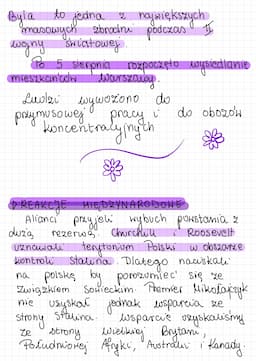 Była to jedna z największych
masowych zbrodni podczas II
wojny światowej.
Po 5 sierpnia rozpoczęto wysiedlanie
mieszkańców Warszawy.
Ludzi wywożono do
przymusowej pracy i do obozów
koncentracyjnych
REAKCJE MIĘDZYNARODOWE
Alianci przyjęli wybuch powstania z
dużą rezerwą. Churchill i Roosevelt
uznawali terytorium Polski w obszarze
kontroli Stalina. Dlatego naciskali
na polskę by porozumieć się ze
związkiem sowieckim. Premier Mikołajczyk
nie uzyskał jednak wsparcia ze
strony Stalina. Wsparcie uzyskaliśmy
ze strony wielkiej Brytani,
Południowej Afryki, Australii i Kanady.